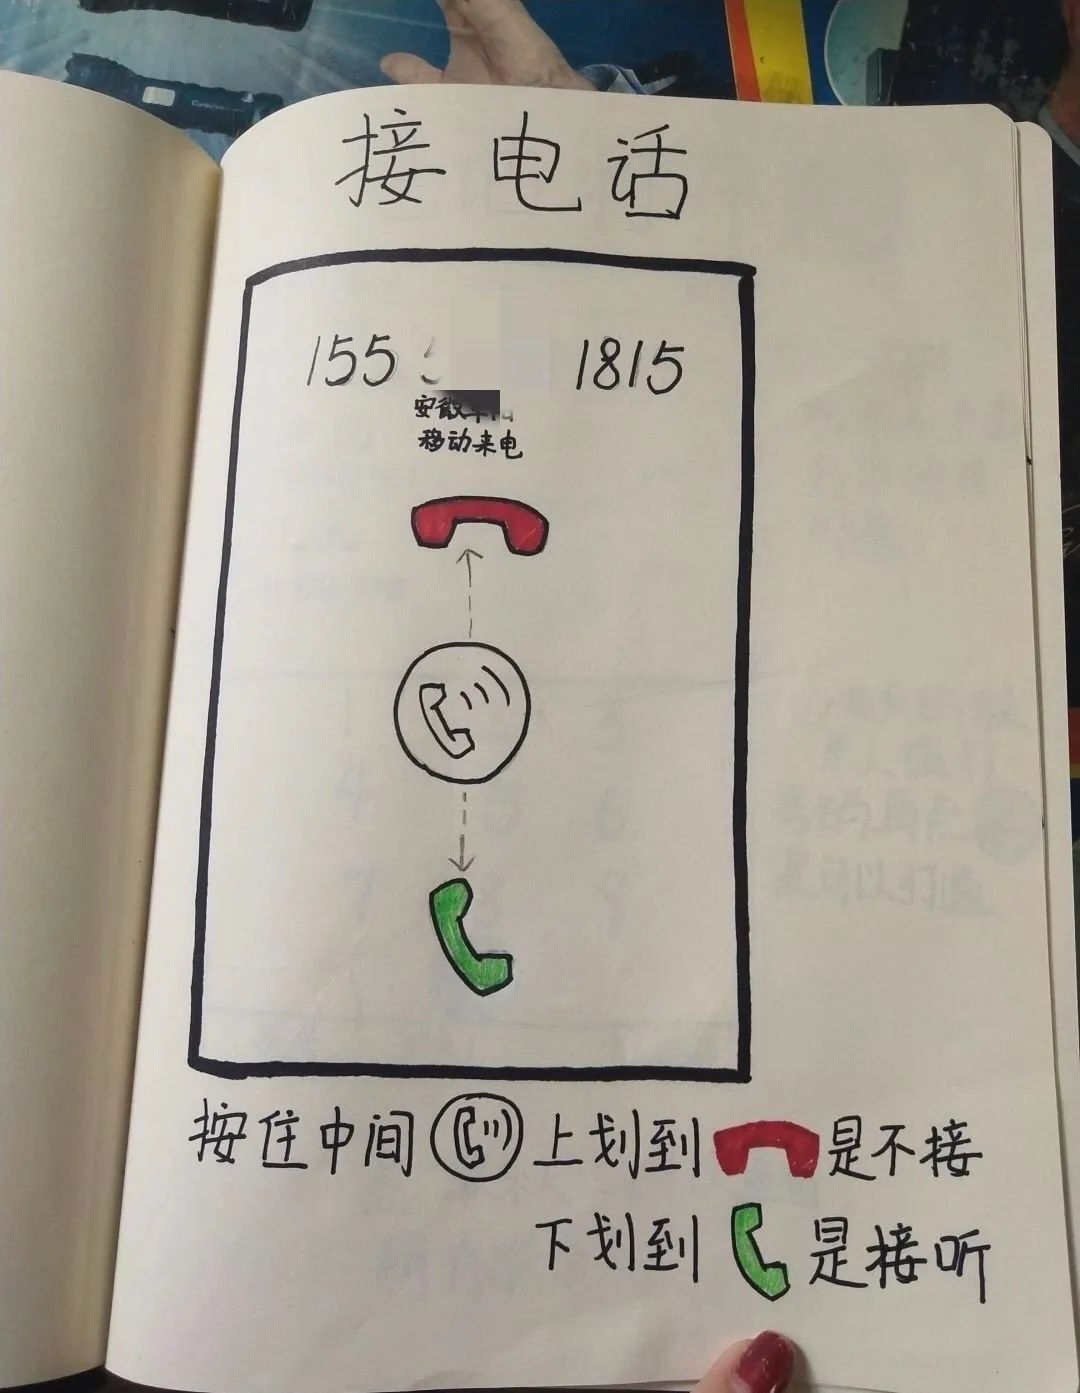 接电话
155 1815
安徽
移动来电
按住中间 上划到 是不接
下划到 是接听